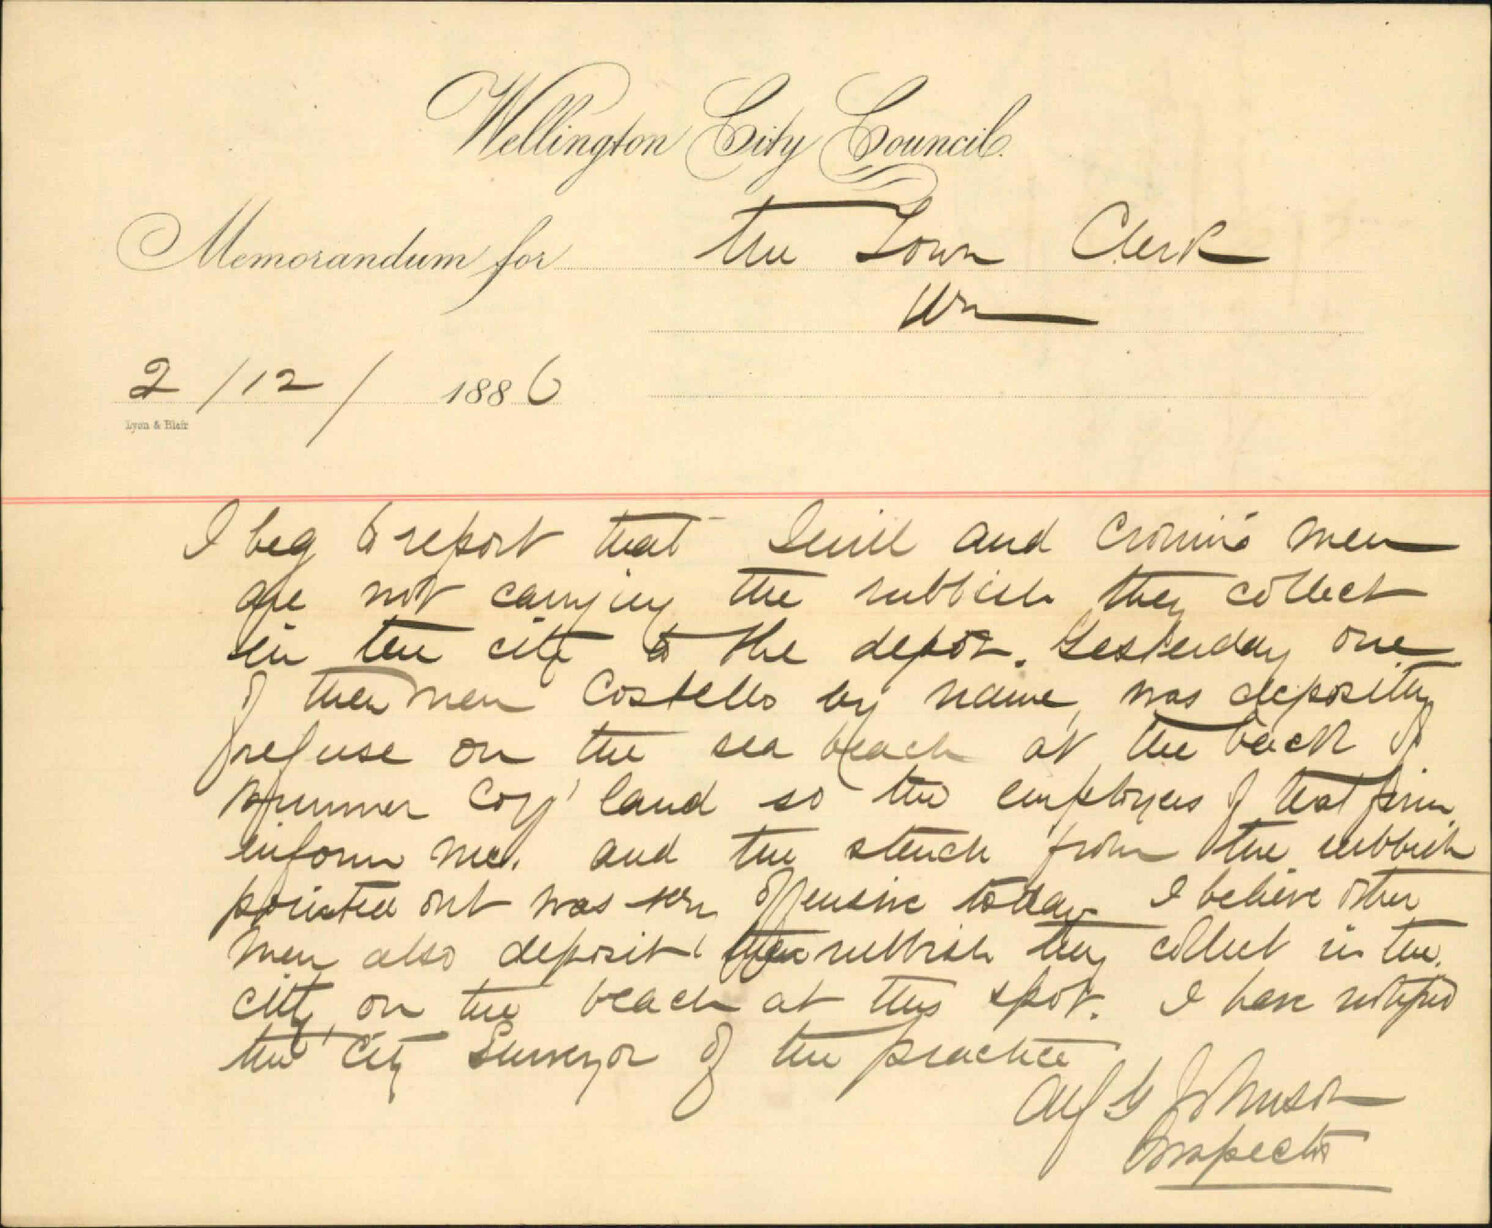 Wellington City Council.
Memorandum for the Town Clerk
Wn
2/12/ 1886
Lyon & Blair
I beg to report that and Cronin's men
are not carrying the rubbish they collect
in the city to the depot. Yesterday one
of their men Costello by name, was depositing
refuse on the sea beach at the back of
Coys' land so the employees of that firm
inform me. and the stench from the rubbish
pointed out was very offensive today I believe other
men also deposit the rubbish they collect in the
city on the beach at this spot. I have notified
the City Surveyor of the practice
Alf G Johnson
Inspector